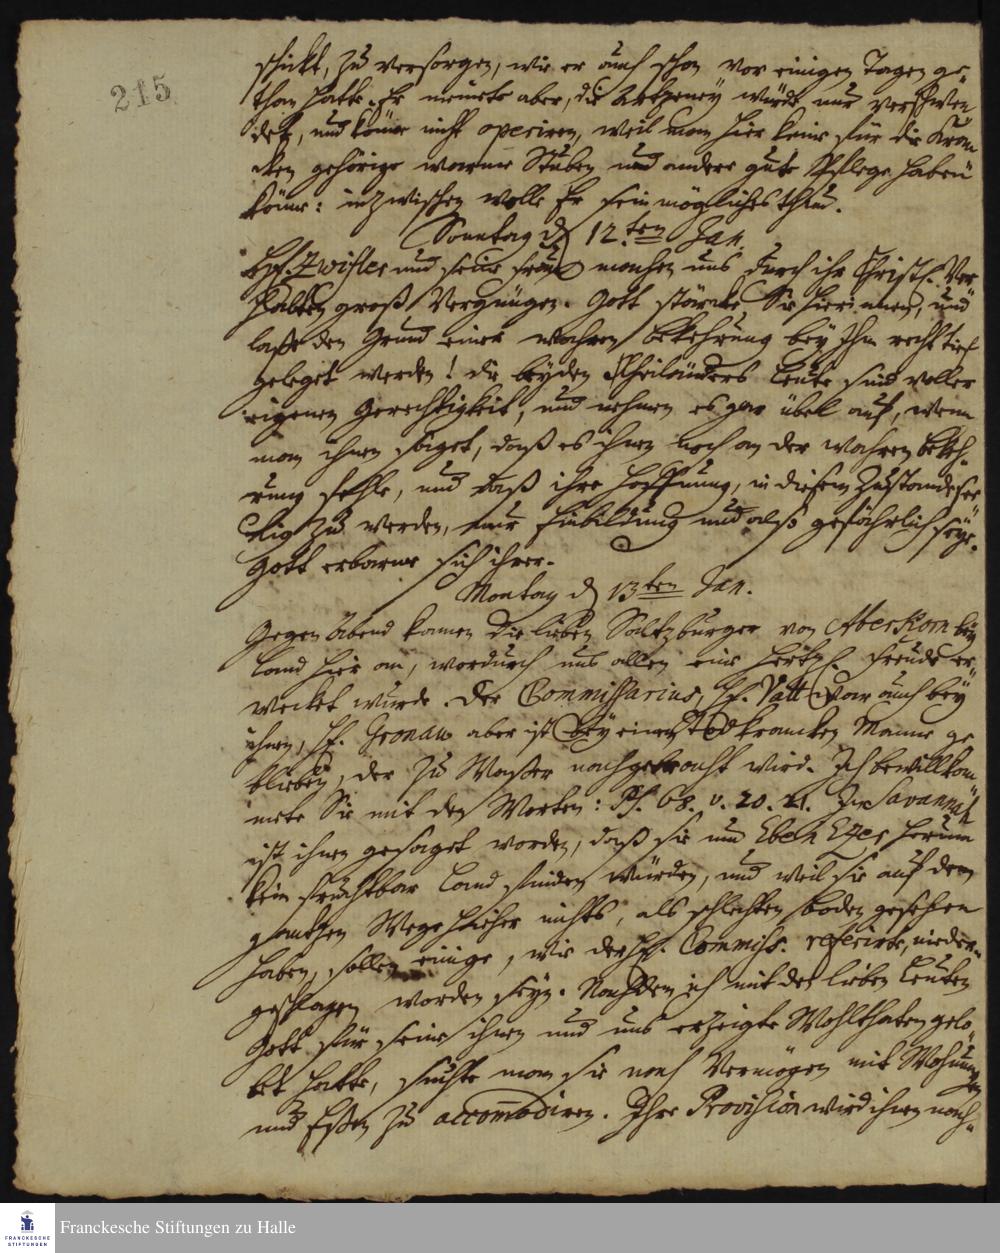 215
schickt, zu versorgen, wie er auch schon vor einigen Tagen ge-
than hatte. Er meinete aber, die Artzeney würde nur verschwen
det, und könne nicht operiren, weil man hier keine für die Kran-
cken gehörige warme Stuben und andere gute Pflege haben
könne: inzwischen wolle Er sein mögliches thun.
Sonntag d 12.ten Jan.
Hr. Zwifler und seine Frau machen uns durch ihr Christl. Ver-
halten groß Vergnügen. Gott stärcke Sie hierinnen, und
laße den Grund einer wahren Bekehrung bey Ihm recht tief
geleget werden! Die beyden Rheiländers Leute sind voller
eigenen Gerechtigkeit, und nehmen es gar übel auf, wenn
man ihnen saget, daß es ihnen noch an der wahren Bekeh-
rung fehle, und daß ihre Hoffnung, in diesem Zustande see-
lig zu werden, nur Einbildung und also gefährlich seye.
Gott erbarme sich ihrer.
Montag d 13ten Jan.
Gegen Abend kamen die lieben Saltzburger von Aberkorn zu
Land hier an, wordurch uns allen eine hertzl. Freude er-
wecket wurde. Der Commissarius, Hr. Vatt war auch bey
ihnen, Hr. Gronau aber ist bey einem Todkrancken Manne ge-
blieben, der zu Waßer nachgebracht wird. Ich bewillkom-
mete Sie mit den Worten: Ps. 68. v. 20. 21. In Savannah
ist ihnen gesaget worden, daß sie um Eben Ezer herum
kein fruchtbar Land finden würden, und weil sie auf dem
gantzen Wege hieher nichts, als schlechten boden gesehen
haben, sollen einige, wie der Hr. Commiss. referirte, nieder-
geschlagen worden seyn. Nachdem ich mit den lieben Leuten
Gott für seine ihnen und uns erzeigte Wohlthaten gelo-
bet hatte, suchte man sie nach Vermögen mit Wohnungen
und Eßen zu accommodiren. Ihre Provision wird ihnen nach-
Franckesche Stiftungen zu Halle
FRANCKESCHE
STIFTUNGEN